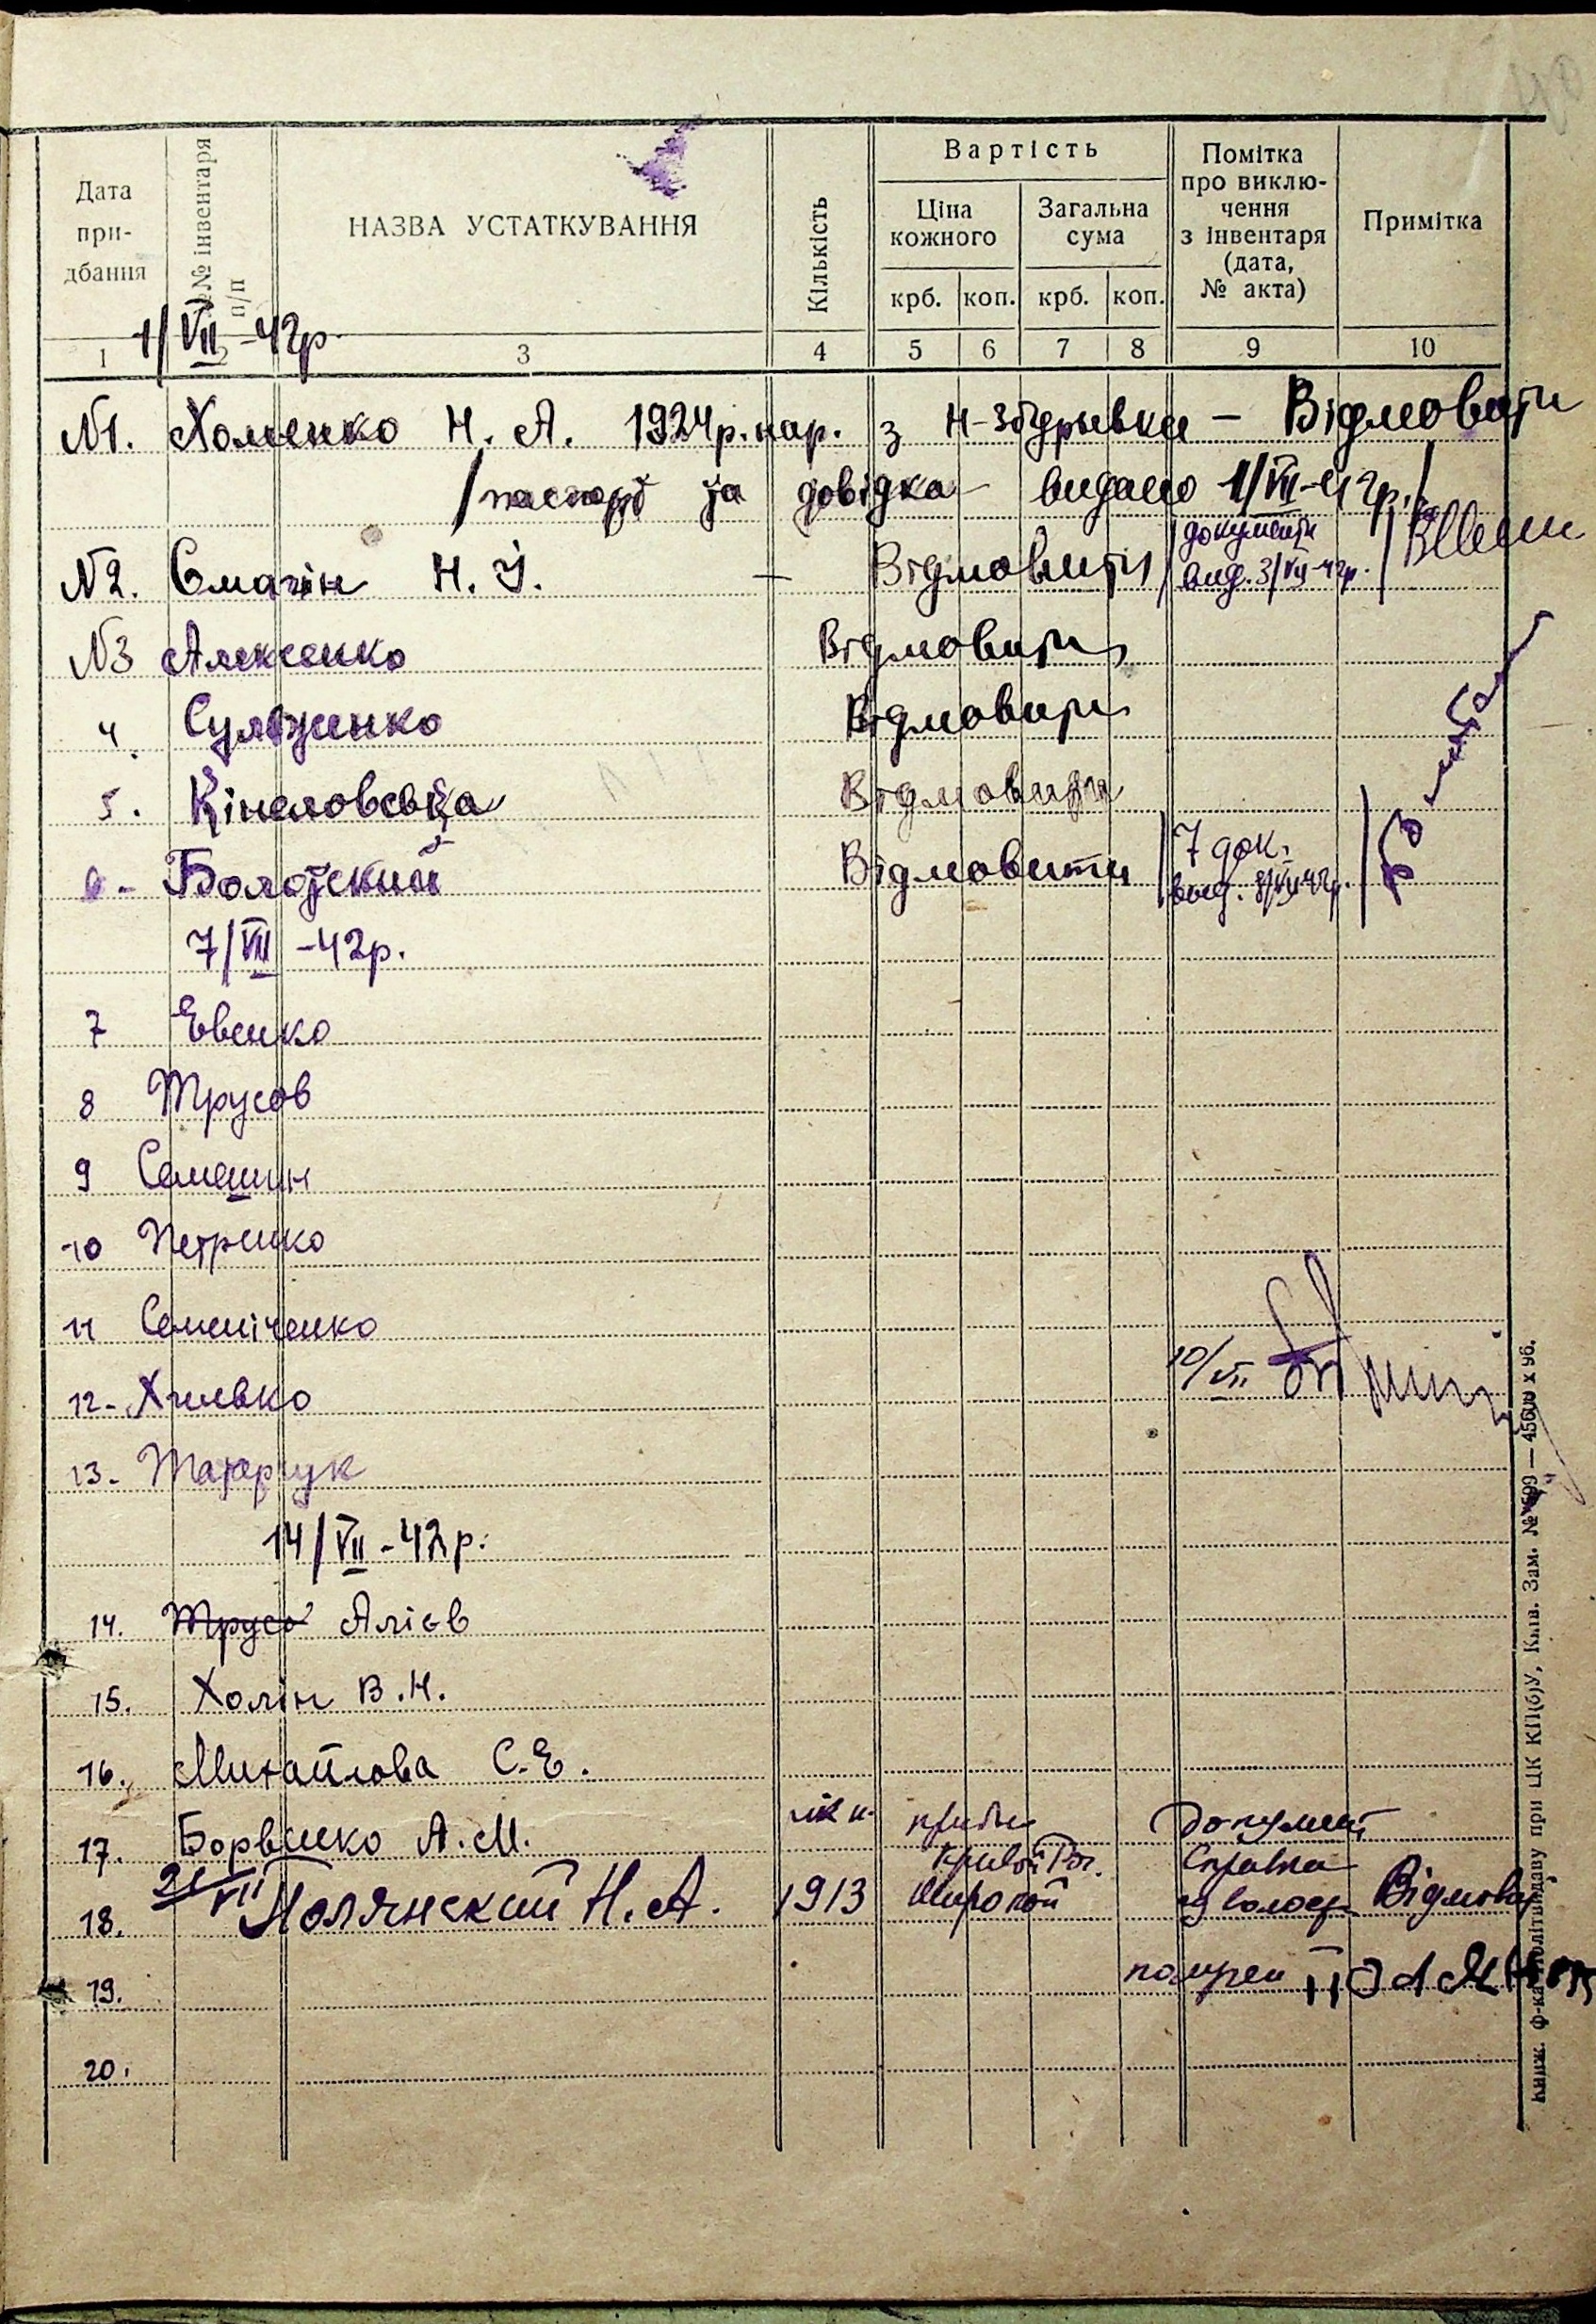 Дата при- дбання
№№ інвентаря п/п
НАЗВА УСТАТКУВАННЯ
Кількість
Вартість
Ціна кожного
Загальна сума
крб. коп. крб. коп.
Помітка про виклю- чення з інвентаря (дата, № акта)
Примітка
1/VII-42р.
1 2 3 4 5 6 7 8 9 10
№1. Хоменко Н. А. 1924р. нар. з Н-Збурьвки – Відмовити
/паспорт та довідка – видано 1/VII-42р./
№2. Смагін Н. І. – Відмовити /документи
вид. 3/VII-42р./
№3 Алексеенко Відмовити
4. Сулженко Відмовити
5. Відмовити
6 - Болотский Відмовити / 7 док.
вид. 8/VII-42р. /
7/VII-42р.
7 Евенко
8 Трусов
9 Семешин
10 Петренко
11 Семеніченко
12- Хилько
10/VII
13- Татарчук
14/VII-42р.
14. Трусо Алієв
15. Холін В.Н.
16. Михайлова С.Е.
17. Борвенко А.М.
Документ
21/VII Кривой Рог. Справка
18. Полянский Н.А. 1913 Широкой Відмова
19.
20.
Книж. ф-ка Політвидаву при ЦК КП(б)У, Київ. Зам. №